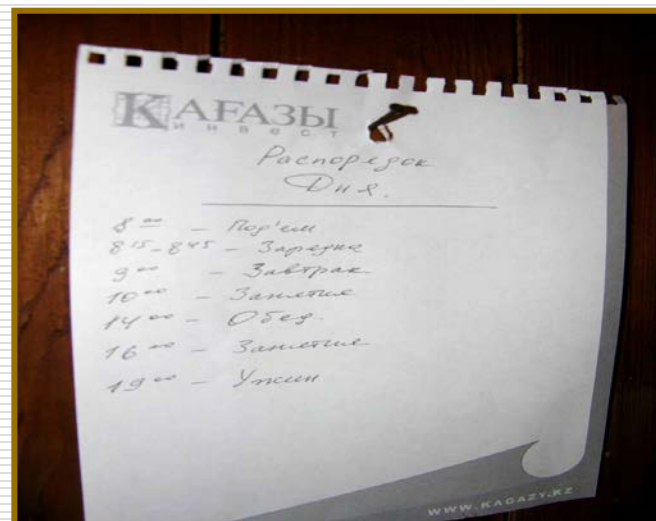 КАҒАЗЫ
ИНВЕСТ
Распорядок
Дня.
8 00 – Под'ем
8 15 - 8 45 – Зарядка
9 00 – Завтрак
10 00 – Занятия
14 00 – Обед.
16 00 – Занятия
19 00 – Ужин
WWW.KAGAZY.KZ